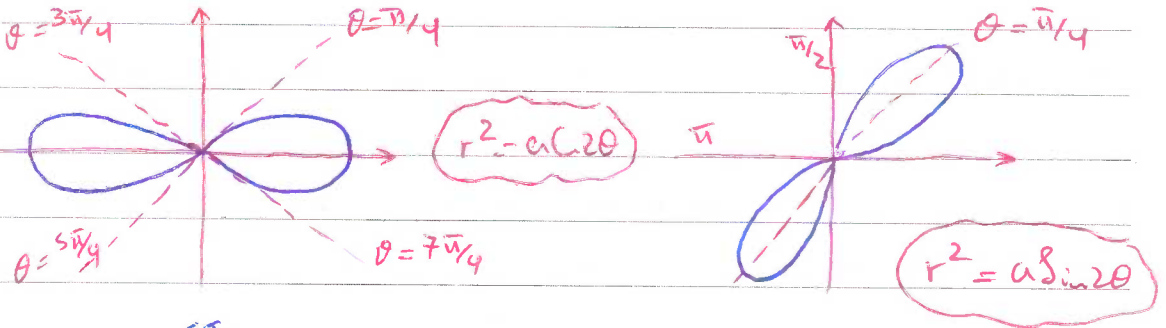 θ = 3π/4
θ = π/4
r² = aC2θ
θ = 5π/4
θ = 7π/4
π/2
θ = π/4
π
r² = aSin2θ